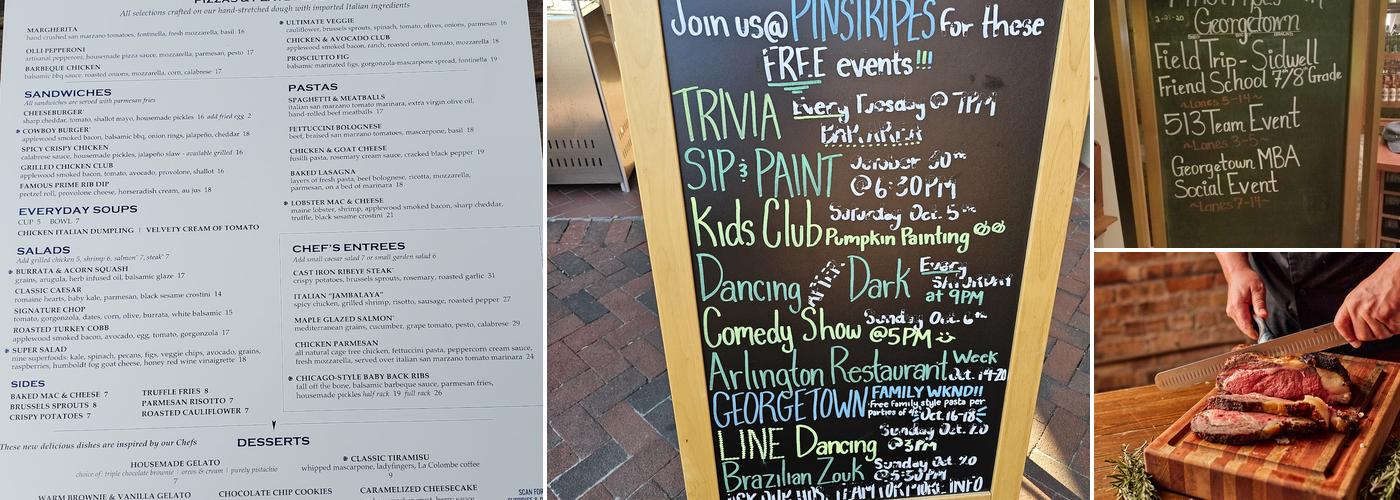 All selections crafted on our hand-stretched dough with imported Italian ingredients
MARGHERITA
hand crushed san marzano tomatoes, fontinella, fresh mozzarella, basil 16
OLLI PEPPERONI
artisanal pepperoni, housemade pizza sauce, mozzarella, parmesan, pesto 17
BARBEQUE CHICKEN
balsamic bbq sauce, roasted onions, mozzarella, corn, calabrese 17
ULTIMATE VEGGIE
cauliflower, brussels sprouts, spinach, tomato, olives, onions, parmesan 16
CHICKEN & AVOCADO CLUB
applewood smoked bacon, ranch, roasted onion, tomato, mozzarella 18
PROSCIUTTO FIG
balsamic marinated figs, gorgonzola-mascarpone spread, fontinella 19
SANDWICHES
All sandwiches are served with parmesan fries
CHEESEBURGER*
sharp cheddar, tomato, shallot mayo, housemade pickles 16 add fried egg 2
COWBOY BURGER*
applewood smoked bacon, balsamic bbq, onion rings, jalapeño, cheddar 18
SPICY CRISPY CHICKEN
calabrese sauce, housemade pickles, jalapeño slaw - available grilled 16
GRILLED CHICKEN CLUB
applewood smoked bacon, tomato, avocado, provolone, shallot 16
FAMOUS PRIME RIB DIP
pretzel roll, provolone cheese, horseradish cream, au jus 18
EVERYDAY SOUPS
CUP 5 BOWL 7
CHICKEN ITALIAN DUMPLING | VELVETY CREAM OF TOMATO
SALADS
Add grilled chicken 5, shrimp 6, salmon* 7, steak* 7
BURRATA & ACORN SQUASH
grains, arugula, herb infused oil, balsamic glaze 17
CLASSIC CAESAR
romaine hearts, baby kale, parmesan, black sesame crostini 14
SIGNATURE CHOP
tomato, gorgonzola, dates, corn, olive, burrata, white balsamic 15
ROASTED TURKEY COBB
applewood smoked bacon, avocado, egg, tomato, gorgonzola 17
SUPER SALAD
nine superfoods: kale, spinach, pecans, figs, veggie chips, avocado, grains,
raspberries, humboldt fog goat cheese, honey red wine vinaigrette 18
SIDES
BAKED MAC & CHEESE 7
BRUSSELS SPROUTS 8
CRISPY POTATOES 7
TRUFFLE FRIES 8
PARMESAN RISOTTO 7
ROASTED CAULIFLOWER 7
PASTAS
SPAGHETTI & MEATBALLS
italian san marzano tomato marinara, extra virgin olive oil,
hand-rolled beef meatballs 17
FETTUCCINI BOLOGNESE
beef, braised san marzano tomatoes, mascarpone, basil 18
CHICKEN & GOAT CHEESE
fusilli pasta, rosemary cream sauce, cracked black pepper 19
BAKED LASAGNA
layers of fresh pasta, beef bolognese, ricotta, mozzarella,
parmesan, on a bed of marinara 18
LOBSTER MAC & CHEESE
maine lobster, shrimp, applewood smoked bacon, sharp cheddar,
truffle, black sesame crostini 21
CHEF'S ENTREES
Add small caesar salad 7 or small garden salad 6
CAST IRON RIBEYE STEAK*
crispy potatoes, brussels sprouts, rosemary, roasted garlic 31
ITALIAN "JAMBALAYA"
spicy chicken, grilled shrimp, risotto, sausage, roasted pepper 27
MAPLE GLAZED SALMON*
mediterranean grains, cucumber, grape tomato, pesto, calabrese 29
CHICKEN PARMESAN
all natural cage free chicken, fettuccini pasta, peppercorn cream sauce,
fresh mozzarella, served over italian san marzano tomato marinara 24
CHICAGO-STYLE BABY BACK RIBS
fall off the bone, balsamic barbeque sauce, parmesan fries,
housemade pickles half rack 19 full rack 26
These new delicious dishes are inspired by our Chefs
DESSERTS
HOUSEMADE GELATO
choice of: triple chocolate brownie | oreos & cream | purely pistachio
7
CLASSIC TIRAMISU
whipped mascarpone, ladyfingers, La Colombe coffee
9
WARM BROWNIE & VANILLA GELATO
CHOCOLATE CHIP COOKIES
CARAMELIZED CHEESECAKE
SCAN FOR
Join us@ PINSTRIPES for these
FREE events!!!
TRIVIA Every Tuesday @ 7PM
SIP & PAINT October 30th
@ 6:30PM
Kids Club Saturday Oct. 5th
Pumpkin Painting
Dancing After Dark Every
Saturday
at 9PM
Comedy Show Sunday Oct. 6th
@5PM
Arlington Restaurant Week
Oct. 14-20
GEORGETOWN FAMILY WKND!!
Free family style pasta per
parties of 4! Oct.16-18
LINE Dancing Sunday Oct. 20
@3PM
Brazilian Zouk Sunday Oct. 20
@5:30PM
2-21-20
Georgetown
Field Trip - Sidwell
Friend School 7/8th Grade
~Lanes 5-14~
513 Team Event
~Lanes 3-5~
Georgetown MBA
Social Event
~Lanes 7-14~